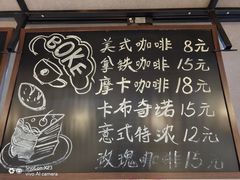 BOKE
美式咖啡 8元
拿铁咖啡 15元
摩卡咖啡 18元
卡布奇诺 15元
意式特浓 12元
玫瑰咖啡 15元
vivo AI camera